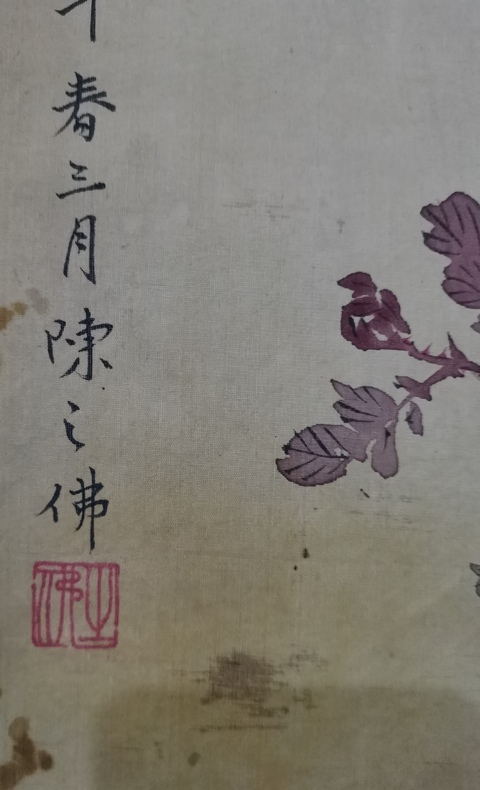 春三月陳之佛
之佛